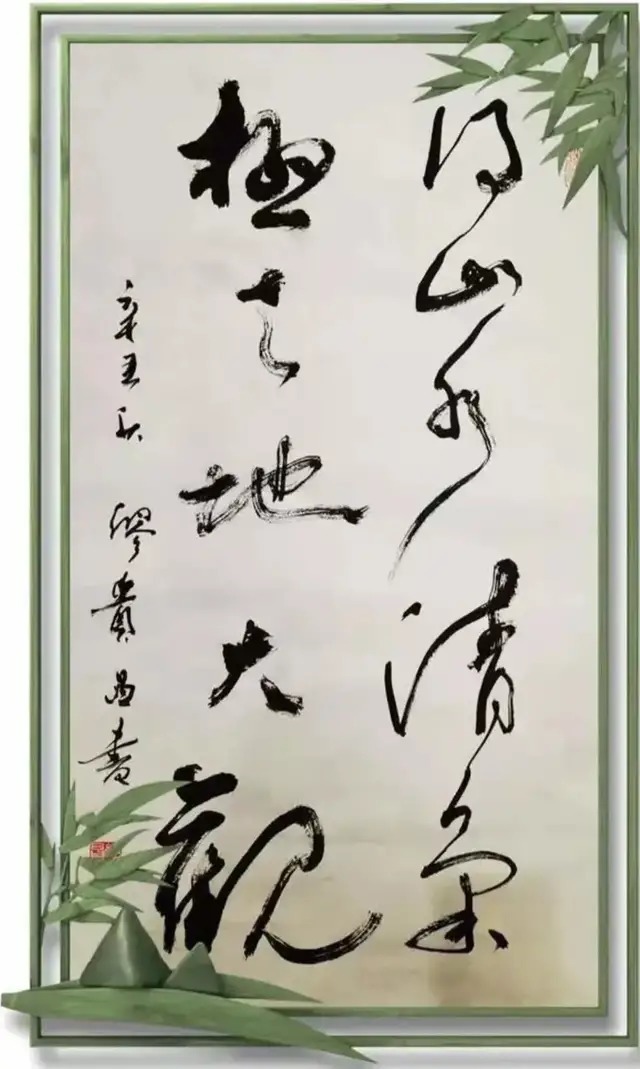 得山水清氣
極天地大觀
辛丑秋 繆貴昌書